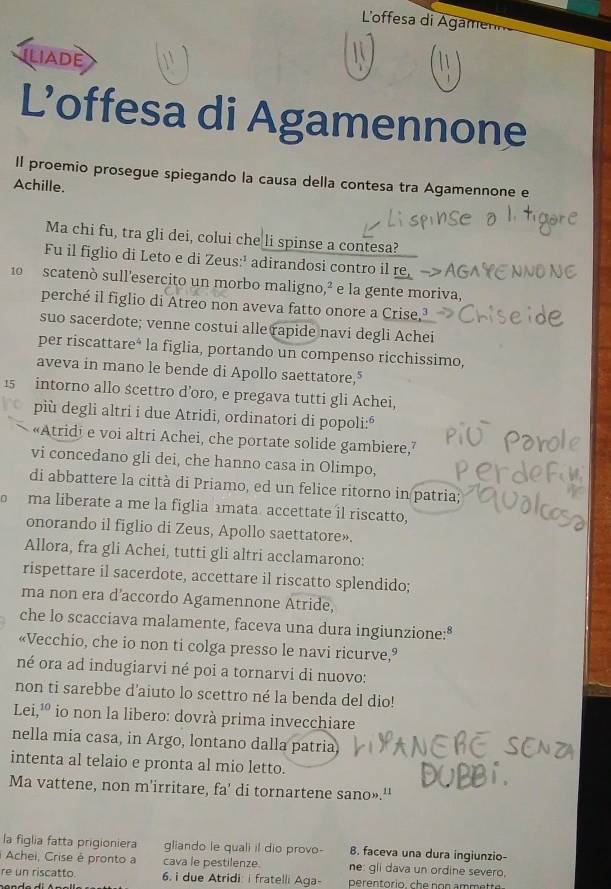 L'offesa di Agamenn
ILIADE
L'offesa di Agamennone
Il proemio prosegue spiegando la causa della contesa tra Agamennone e
Achille.
Li spinse a litigare
Ma chi fu, tra gli dei, colui che li spinse a contesa?
Fu il figlio di Leto e di Zeus:¹ adirandosi contro il re, -> AGAMENNONE
10 scatenò sull'esercito un morbo maligno,² e la gente moriva,
perché il figlio di Atreo non aveva fatto onore a Crise,³ -> Criseide
suo sacerdote; venne costui alle rapide navi degli Achei
per riscattare⁴ la figlia, portando un compenso ricchissimo,
aveva in mano le bende di Apollo saettatore,⁵
15 intorno allo scettro d'oro, e pregava tutti gli Achei,
più degli altri i due Atridi, ordinatori di popoli:⁶
«Atridi e voi altri Achei, che portate solide gambiere,⁷ più parole
vi concedano gli dei, che hanno casa in Olimpo, per defini
di abbattere la città di Priamo, ed un felice ritorno in patria; re qualcosa
ma liberate a me la figlia amata accettate il riscatto,
onorando il figlio di Zeus, Apollo saettatore».
Allora, fra gli Achei, tutti gli altri acclamarono:
rispettare il sacerdote, accettare il riscatto splendido;
ma non era d'accordo Agamennone Atride,
che lo scacciava malamente, faceva una dura ingiunzione:⁸
«Vecchio, che io non ti colga presso le navi ricurve,⁹
né ora ad indugiarvi né poi a tornarvi di nuovo:
non ti sarebbe d'aiuto lo scettro né la benda del dio!
Lei,¹⁰ io non la libero: dovrà prima invecchiare
nella mia casa, in Argo, lontano dalla patria, RIMANERE SENZA
intenta al telaio e pronta al mio letto. DUBBI.
Ma vattene, non m'irritare, fa' di tornartene sano».¹¹
la figlia fatta prigioniera
i Achei, Crise è pronto a
re un riscatto.
gliando le quali il dio provo-
cava le pestilenze.
6. i due Atridi: i fratelli Aga-
8. faceva una dura ingiunzio-
ne: gli dava un ordine severo,
perentorio, che non ammette-